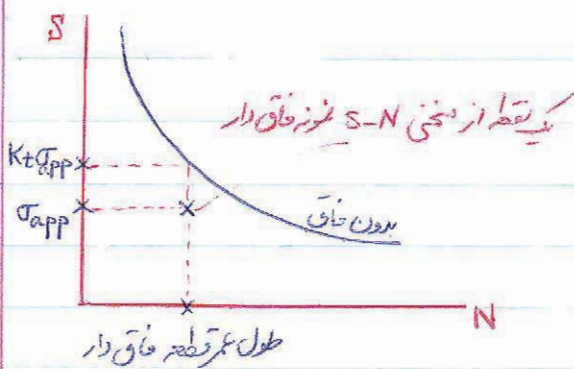 S
یک نقطه از منحنی S-N نمونه فاق دار
Ktσapp
σapp
بدون فاق
N
طول عمر قطعه فاق دار